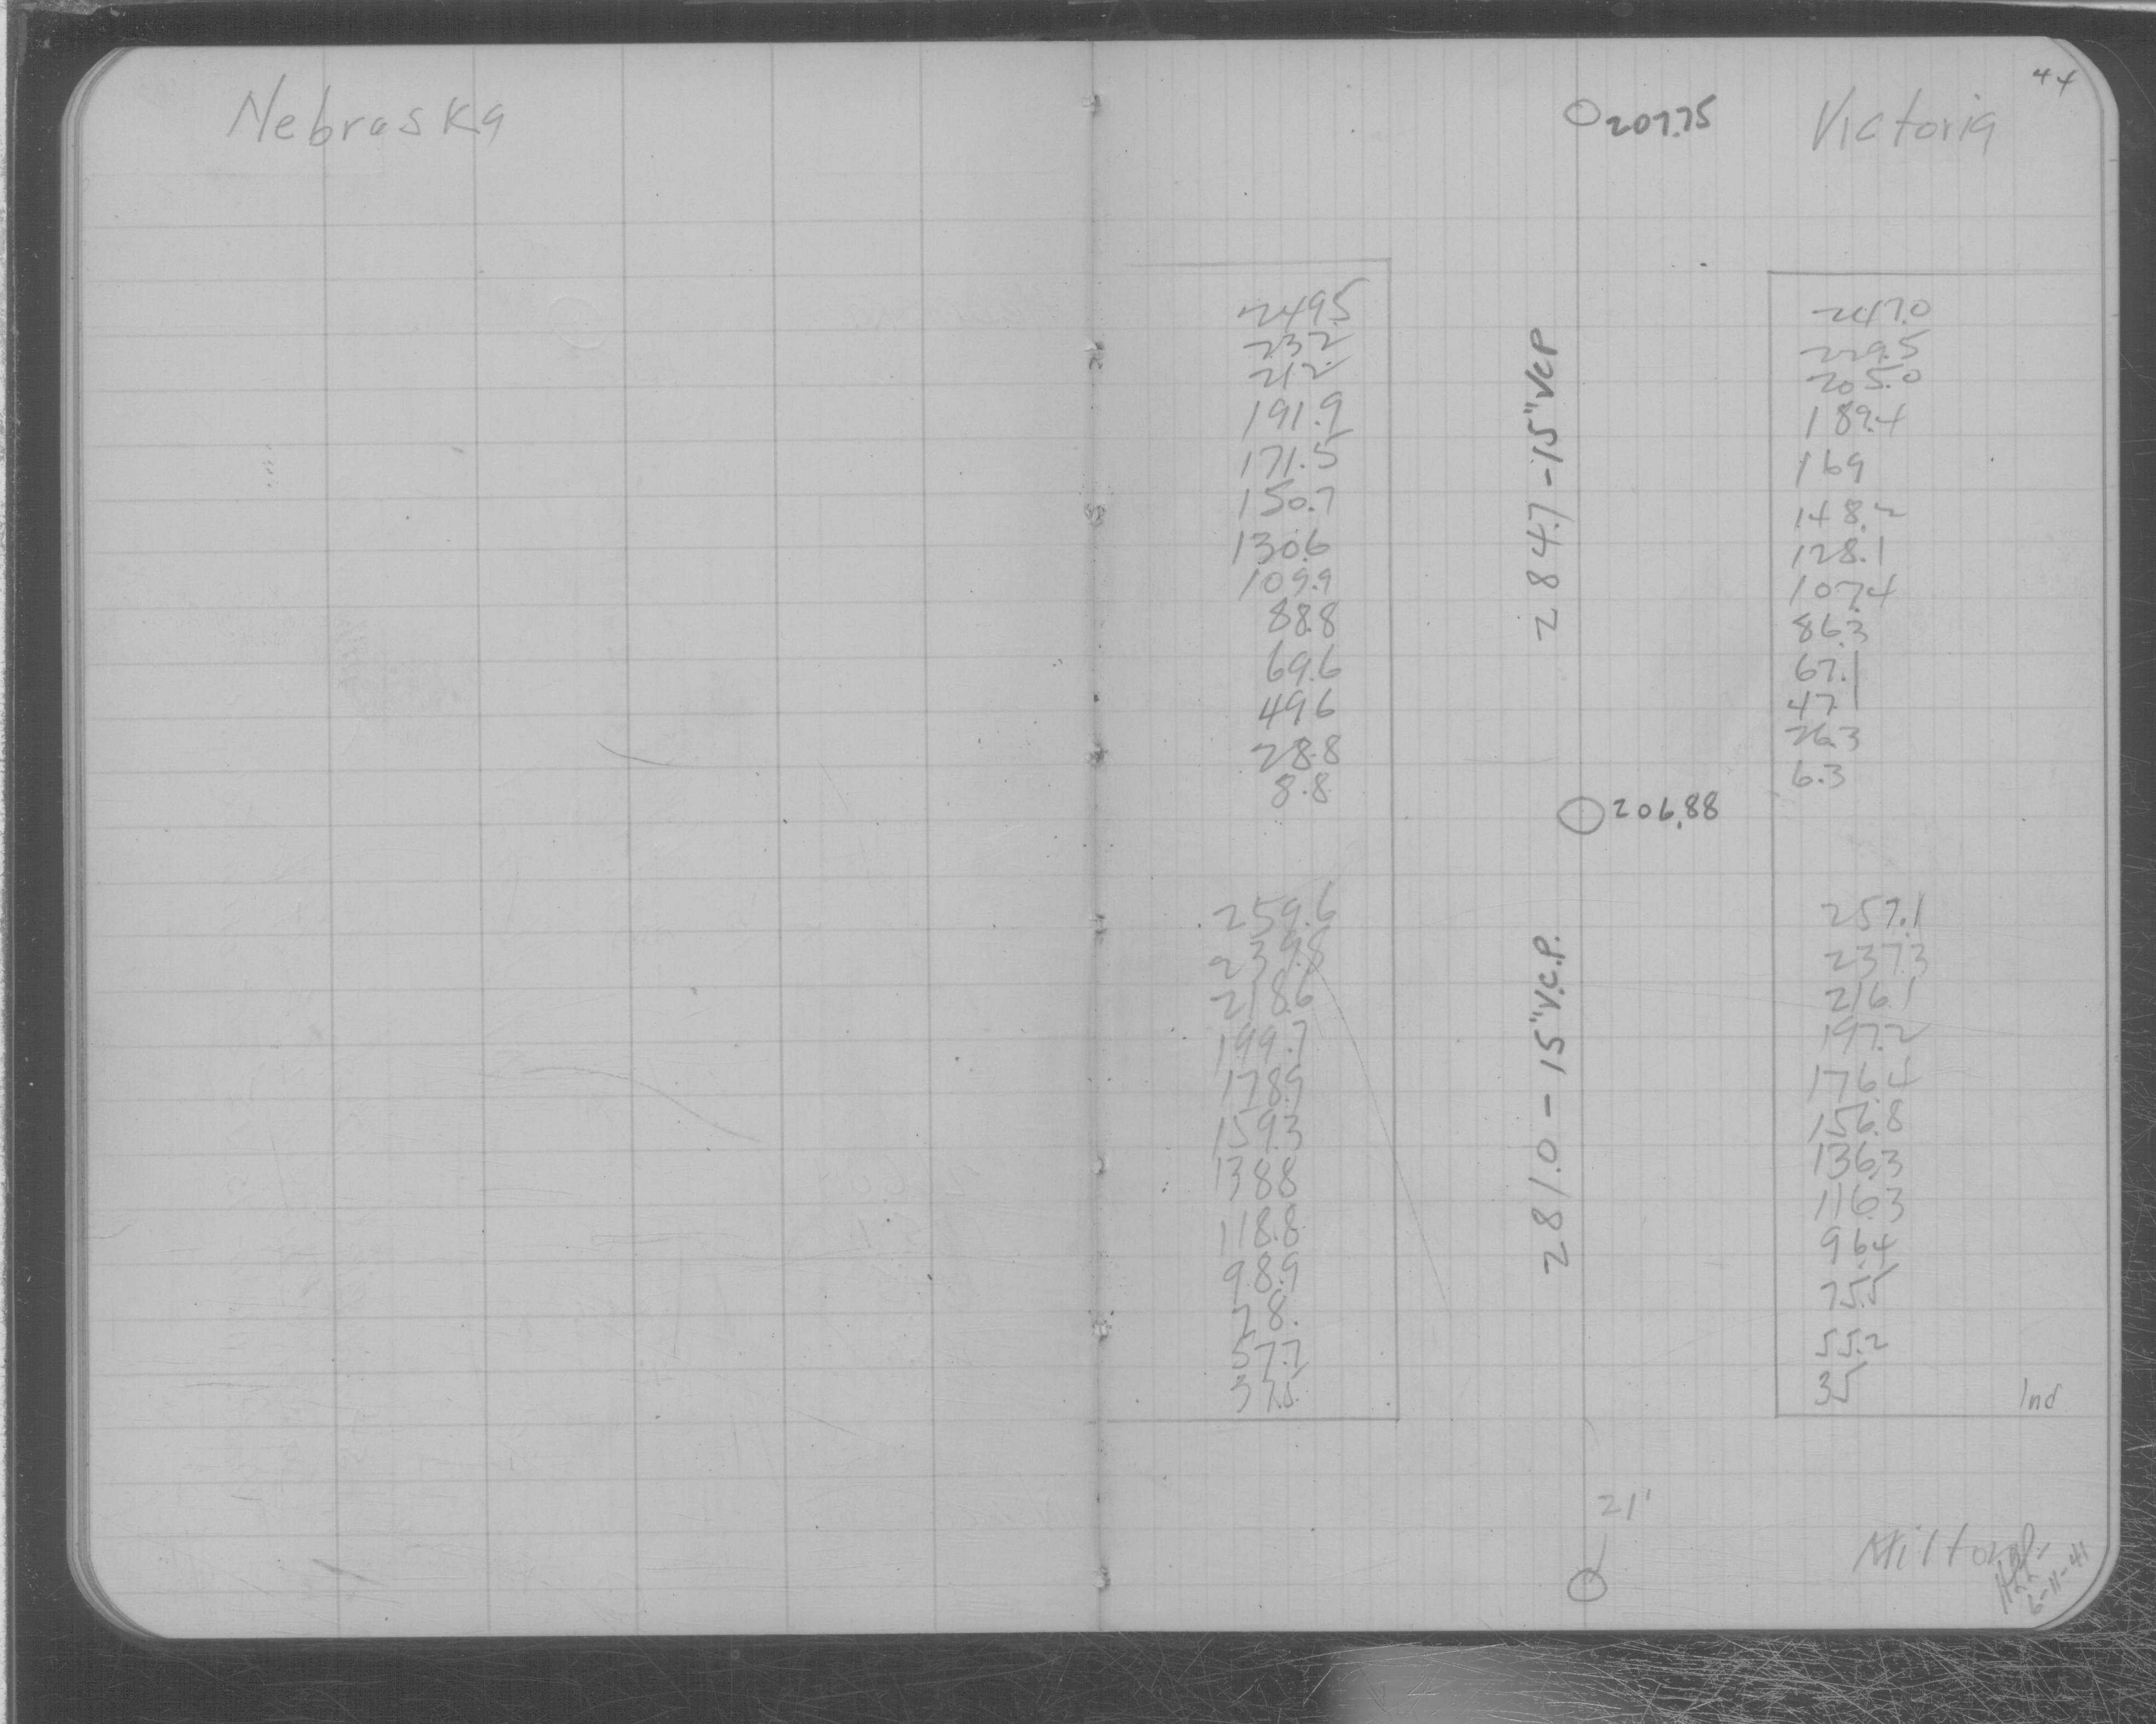 44
Nebraska
207.75 Victoria
249.5 247.0
232. 229.5
212. 205.0
191.9 189.4
171.5 169
150.7 148.2
130.6 128.1
109.9 107.4
88.8 86.3
69.6 67.1
49.6 47.1
28.8 26.3
8.8 6.3
284.7 - 15" VCP
206.88
259.6 257.1
239.8 237.3
218.6 216.1
199.7 197.2
178.9 176.4
159.3 156.8
138.8 136.3
118.8 116.3
98.9 96.4
78. 75.5
57.7 55.2
37.5 35
281.0 - 15" V.C.P.
Ind
21'
Milton
6-11-41